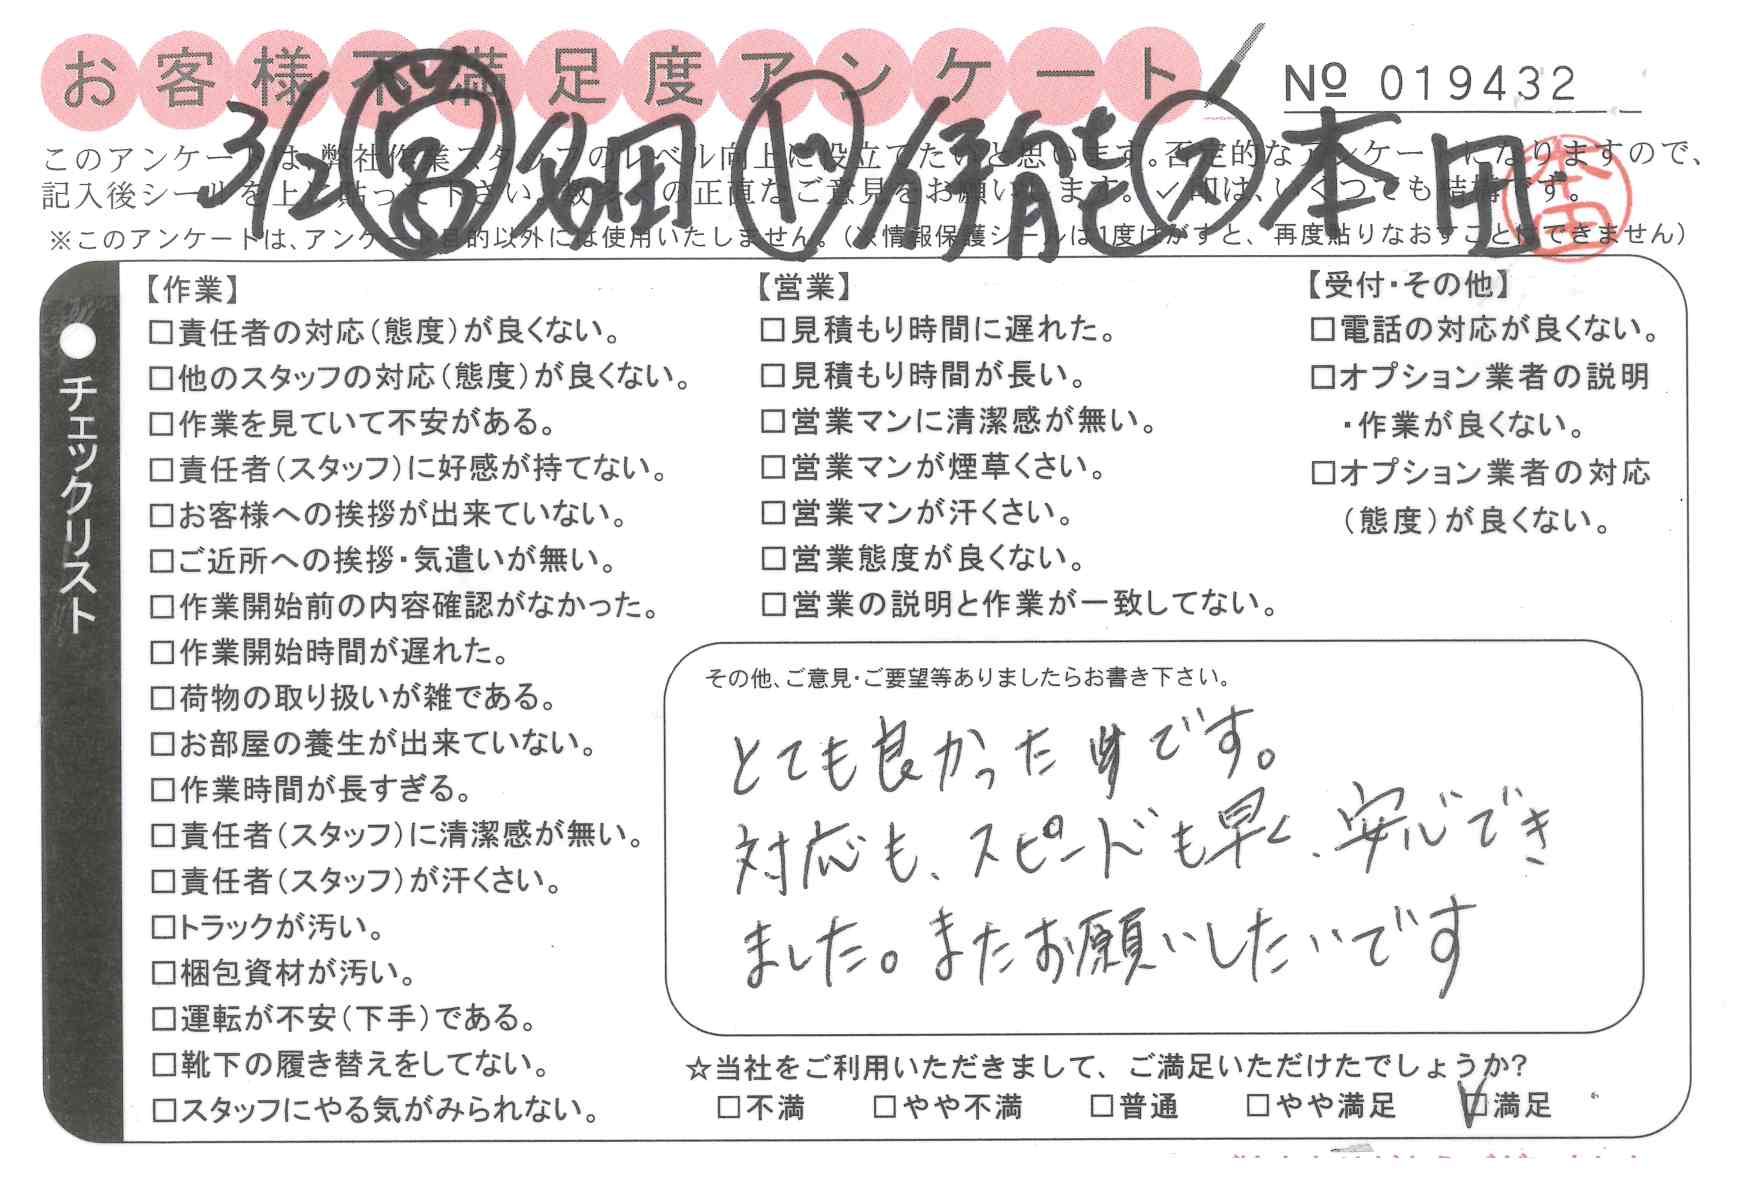 お客様不満足度アンケート
№ 019432
3/2 多田 伊能 ス 本田
このアンケートは、弊社作業スタッフのレベル向上に役立てたいと思います。否定的なアンケートになりますので、
記入後シールを上に貼って下さい。数多くの正直なご意見をお願いします。✓印は、いくつでも結構です。
※このアンケートは、アンケート目的以外には使用いたしません。(※情報保護シールは1度はがすと、再度貼りなおすことはできません)
本田
チェックリスト
【作業】
□責任者の対応(態度)が良くない。
□他のスタッフの対応(態度)が良くない。
□作業を見ていて不安がある。
□責任者(スタッフ)に好感が持てない。
□お客様への挨拶が出来ていない。
□ご近所への挨拶・気遣いが無い。
□作業開始前の内容確認がなかった。
□作業開始時間が遅れた。
□荷物の取り扱いが雑である。
□お部屋の養生が出来ていない。
□作業時間が長すぎる。
□責任者(スタッフ)に清潔感が無い。
□責任者(スタッフ)が汗くさい。
□トラックが汚い。
□梱包資材が汚い。
□運転が不安(下手)である。
□靴下の履き替えをしてない。
□スタッフにやる気がみられない。
【営業】
□見積もり時間に遅れた。
□見積もり時間が長い。
□営業マンに清潔感が無い。
□営業マンが煙草くさい。
□営業マンが汗くさい。
□営業態度が良くない。
□営業の説明と作業が一致してない。
【受付・その他】
□電話の対応が良くない。
□オプション業者の説明
・作業が良くない。
□オプション業者の対応
(態度)が良くない。
その他、ご意見・ご要望等ありましたらお書き下さい。
とても良かったです。
対応も、スピードも早く、安心でき
ました。またお願いしたいです
☆当社をご利用いただきまして、ご満足いただけたでしょうか?
□不満 □やや不満 □普通 □やや満足 ☑満足